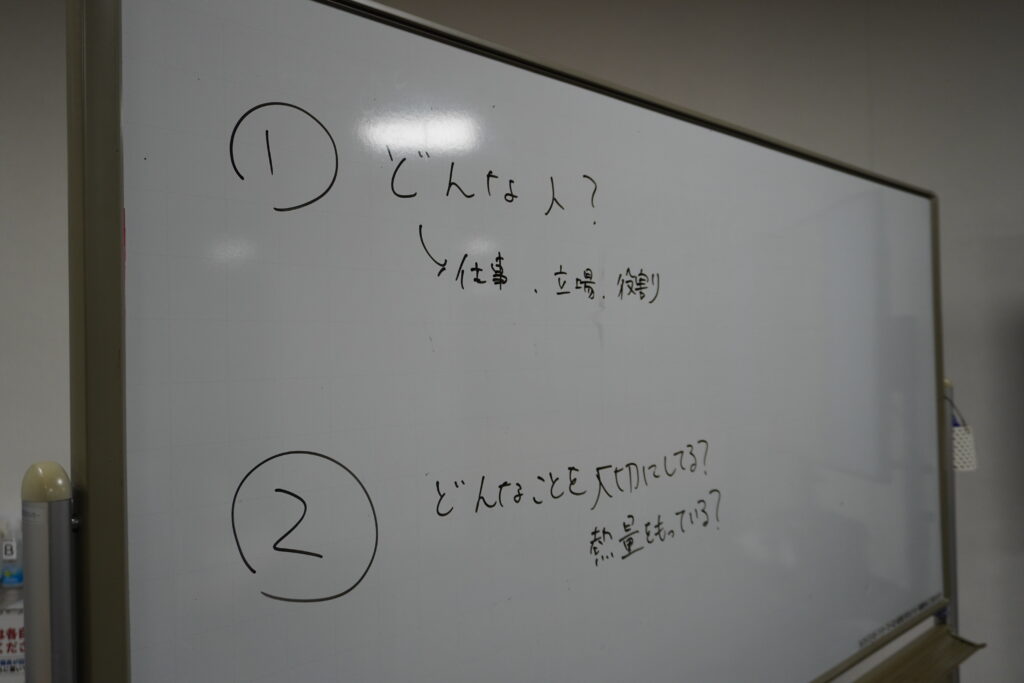 ① どんな人?
↘仕事、立場、役割
② どんなことを大切にしてる?
熱量をもっている?
B